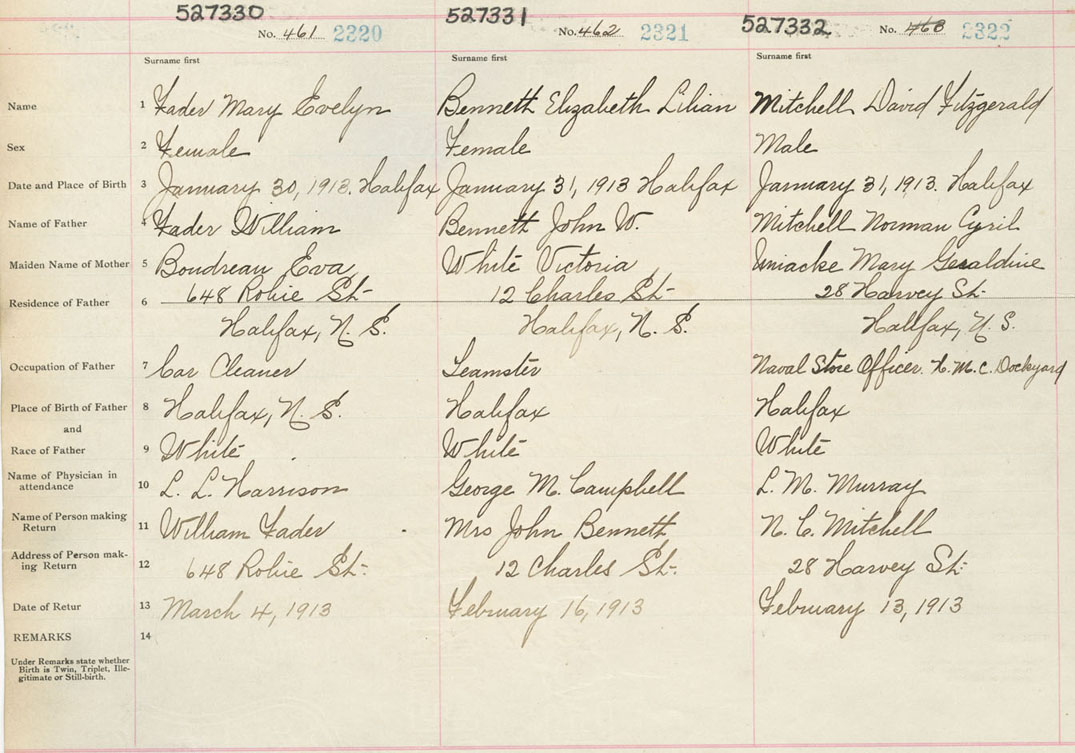 527330 527331 527332
No. 461 2320 No. 462 2321 No. 463 2322
Surname first Surname first Surname first
Name 1 Fader Mary Evelyn Bennett Elizabeth Lilian Mitchell David Fitzgerald
Sex 2 Female Female Male
Date and Place of Birth 3 January 30, 1913. Halifax January 31, 1913 Halifax January 31, 1913. Halifax
Name of Father 4 Fader William Bennett John W. Mitchell Norman Cyril
Maiden Name of Mother 5 Boudreau Eva White Victoria Uniacke Mary Geraldine
Residence of Father 6 648 Robie St. 12 Charles St. 28 Harvey St.
Halifax, N. S. Halifax, N. S. Halifax, N. S.
Occupation of Father 7 Car Cleaner Teamster Naval Store Officer. H. M. C. Dockyard
Place of Birth of Father 8 Halifax, N. S. Halifax Halifax
and
Race of Father 9 White White White
Name of Physician in
attendance 10 L. L. Harrison George M. Campbell L. M. Murray
Name of Person making
Return 11 William Fader Mrs John Bennett N. C. Mitchell
Address of Person mak-
ing Return 12 648 Robie St. 12 Charles St. 28 Harvey St.
Date of Retur 13 March 4, 1913 February 16, 1913 February 13, 1913
REMARKS 14
Under Remarks state whether
Birth is Twin, Triplet, Ille-
gitimate or Still-birth.